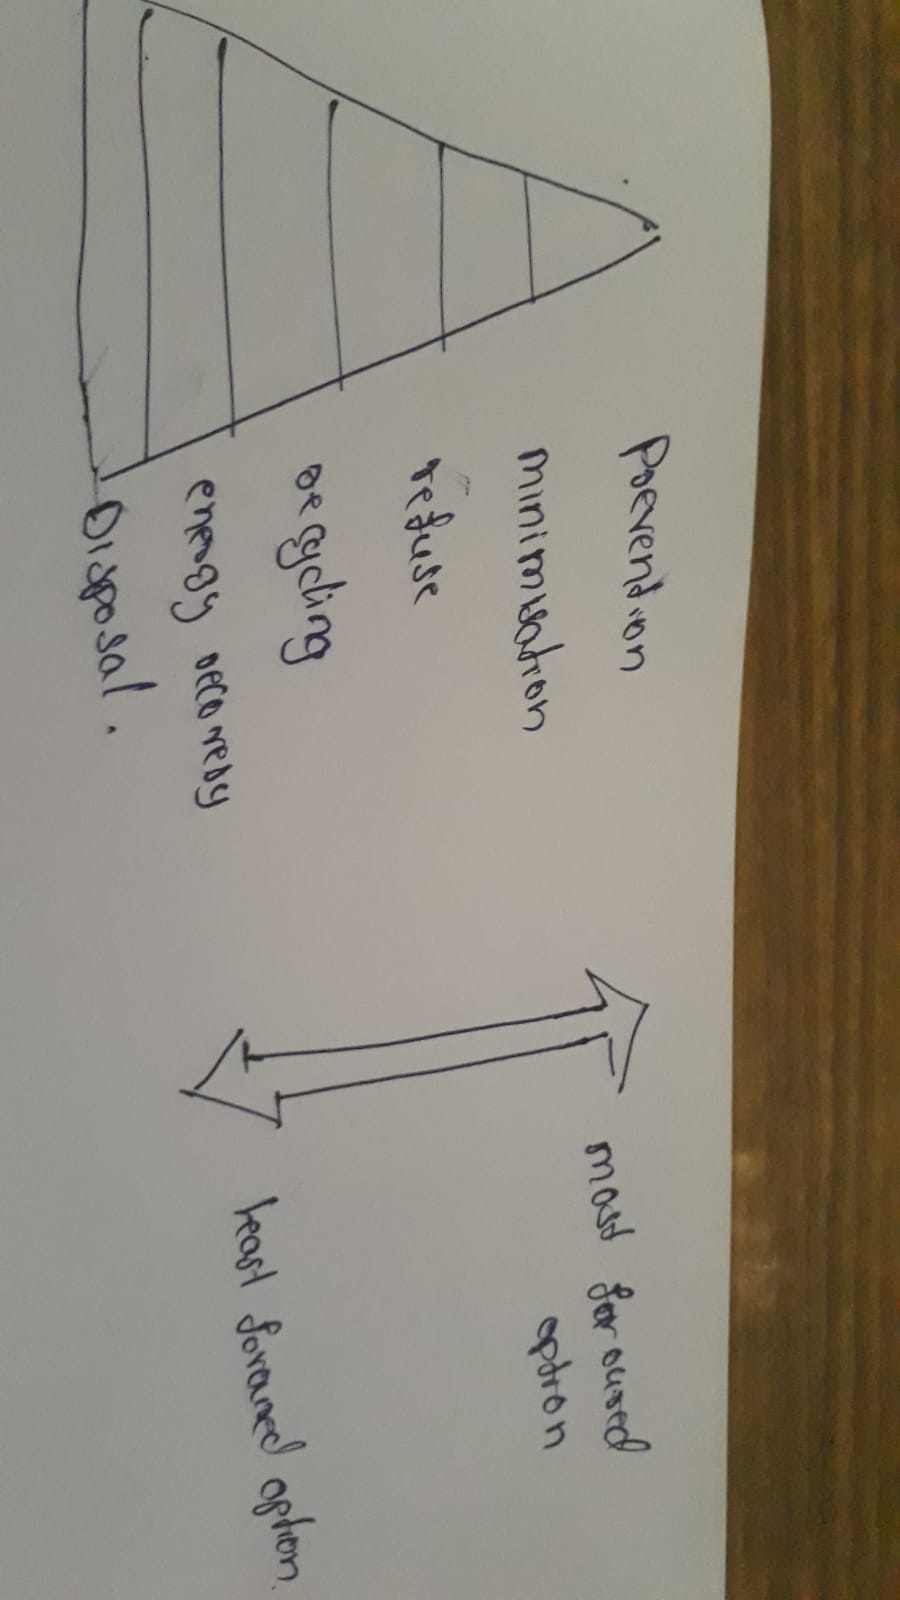 Prevention
minimisation
refuse
recycling
energy recovery
Disposal.
most favoured
option
least favoured option.